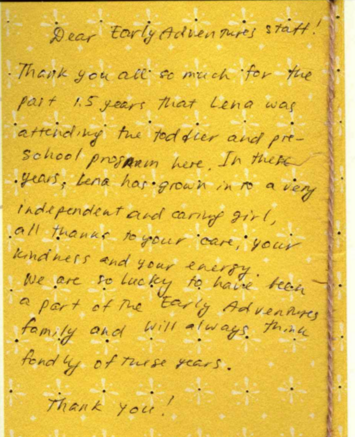 Dear Early Adventures staff!
Thank you all so much for the
past 1.5 years that Lena was
attending the toddler and pre-
school program here. In these
years, Lena has grown in to a very
independent and caring girl,
all thanks to your care, your
kindness and your energy.
We are so lucky to have been
a part of the Early Adventures
family and will always think
fondly of these years.
Thank you!